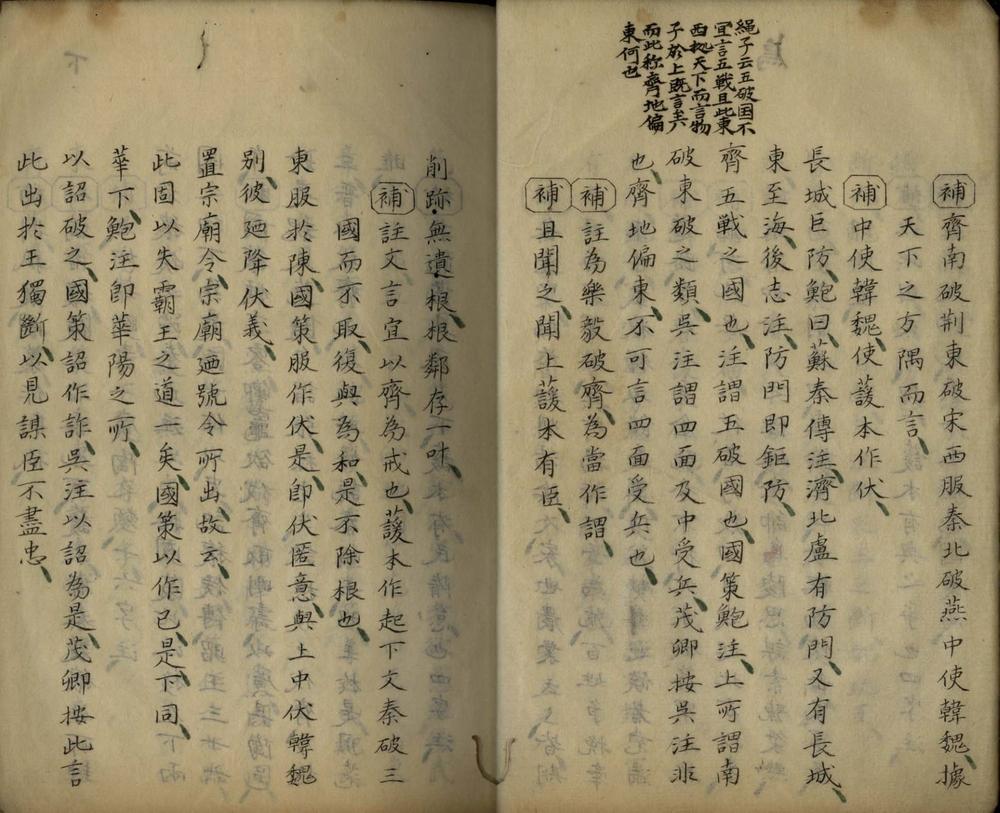 繩子云五破国不
宜言五戰且此東
西抛天下而言物
子於上既言至六
而此称齊地偏
東何也
補齊南破荆東破宋西服秦北破燕中使韓魏據
天下之方隅而言
補中使韓魏使蘐本作伏
長城巨防鮑曰蘇秦傳注濟北盧有防門又有長城
東至海後志注防門即鉅防
齊五戰之國也注謂五破國也國策鮑注上所謂南
破東破之類吳注謂四面及中受兵茂卿按吳注非
也齊地偏東不可言四面受兵也
補註為樂毅破齊為當作謂
補且聞之聞上蘐本有臣
削跡無遺根根鄰存一叶
補註文言宜以齊為戒也蘐本作起下文秦破三
國而不取復與為和是不除根也
東服於陳國策服作伏是即伏匿意與上中伏韓魏
别彼廼降伏義
置宗廟令宗廟廼號令所出故云
此固以失霸王之道一矣國策以作已是下同
華下鮑注即華陽之所
以詔破之國策詔作詐吳注以詔為是茂卿按此言
此出於王獨斷以見謀臣不盡忠